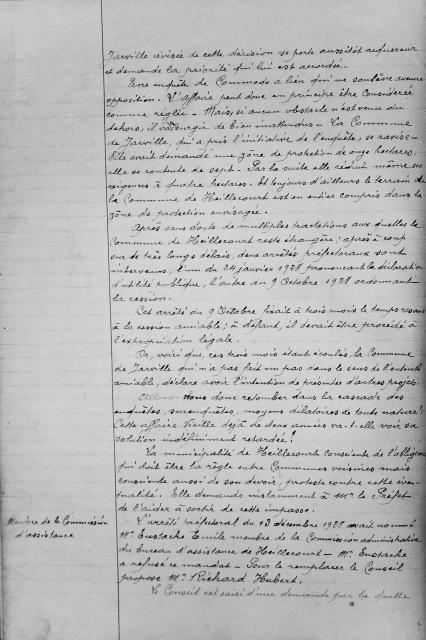 Jarville avisée de cette décision se porte aussitôt acquereur
et demande la priorité qui lui est accordée.
Une enquête de Commodo a lieu qui ne soulève aucune
opposition. L'affaire peut donc en principe être considérée
comme réglée - Mais, si aucun obstacle n'est venu du
dehors, il va surgir de bien inattendus - La Commune
de Jarville, qui a pris l'initiative de l'enquête, se ravise -
Elle avait demandé une zône de protection de onze hectares,
elle se contente de sept - Par la suite elle réduit même ses
exigences à quatre hectares. Et toujours d'ailleurs le terrain de
la Commune de Heillecourt est en entier compris dans la
zône de protection envisagée.
Après sans doute de multiples tractations aux quelles la
Commune de Heillecourt reste étrangère, après à coup
sur de très longs délais, deux arrêtés préfectoraux sont
intervenus, l'un du 24 janvier 1928 prononçant la déclaration
d'utilité publique, l'autre du 9 Octobre 1928 ordonnant
la cession.
Cet arrêté du 9 Octobre fixait à trois mois le temps
à la cession amiable; à défaut, il devrait être procédé à
l'expropriation légale.
Or, voici que, ces trois mois étant écoulés, la Commune
de Jarville qui n'a pas fait un pas dans le sens de l'entente
amiable, déclare avoir l'intention de présenter d'autres projets.
Allons-nous donc retomber dans la cascade des
enquêtes, surenquêtes, moyens dilatoires de toute nature?
Cette affaire vieille déjà de deux années va-t-elle voir sa
solution indéfiniment retardée?
La municipalité de Heillecourt consciente de l'obligeance
qui doit être la règle entre Communes voisines mais
consciente aussi de son devoir, proteste contre cette éven-
tualité. Elle demande instamment à Mr le Préfet
de l'aider à sortir de cette impasse.
Membre de la Commission
d'assistance
L'arrêté préfectoral du 13 décembre 1928 avait nommé
Mr. Eustache Emile membre de la Commission administrative
du bureau d'assistance de Heillecourt - Mr. Eustache
a refusé ce mandat - Pour le remplacer le Conseil
propose Mr. Richard Hubert.
Le Conseil est saisi d'une demande par la quelle